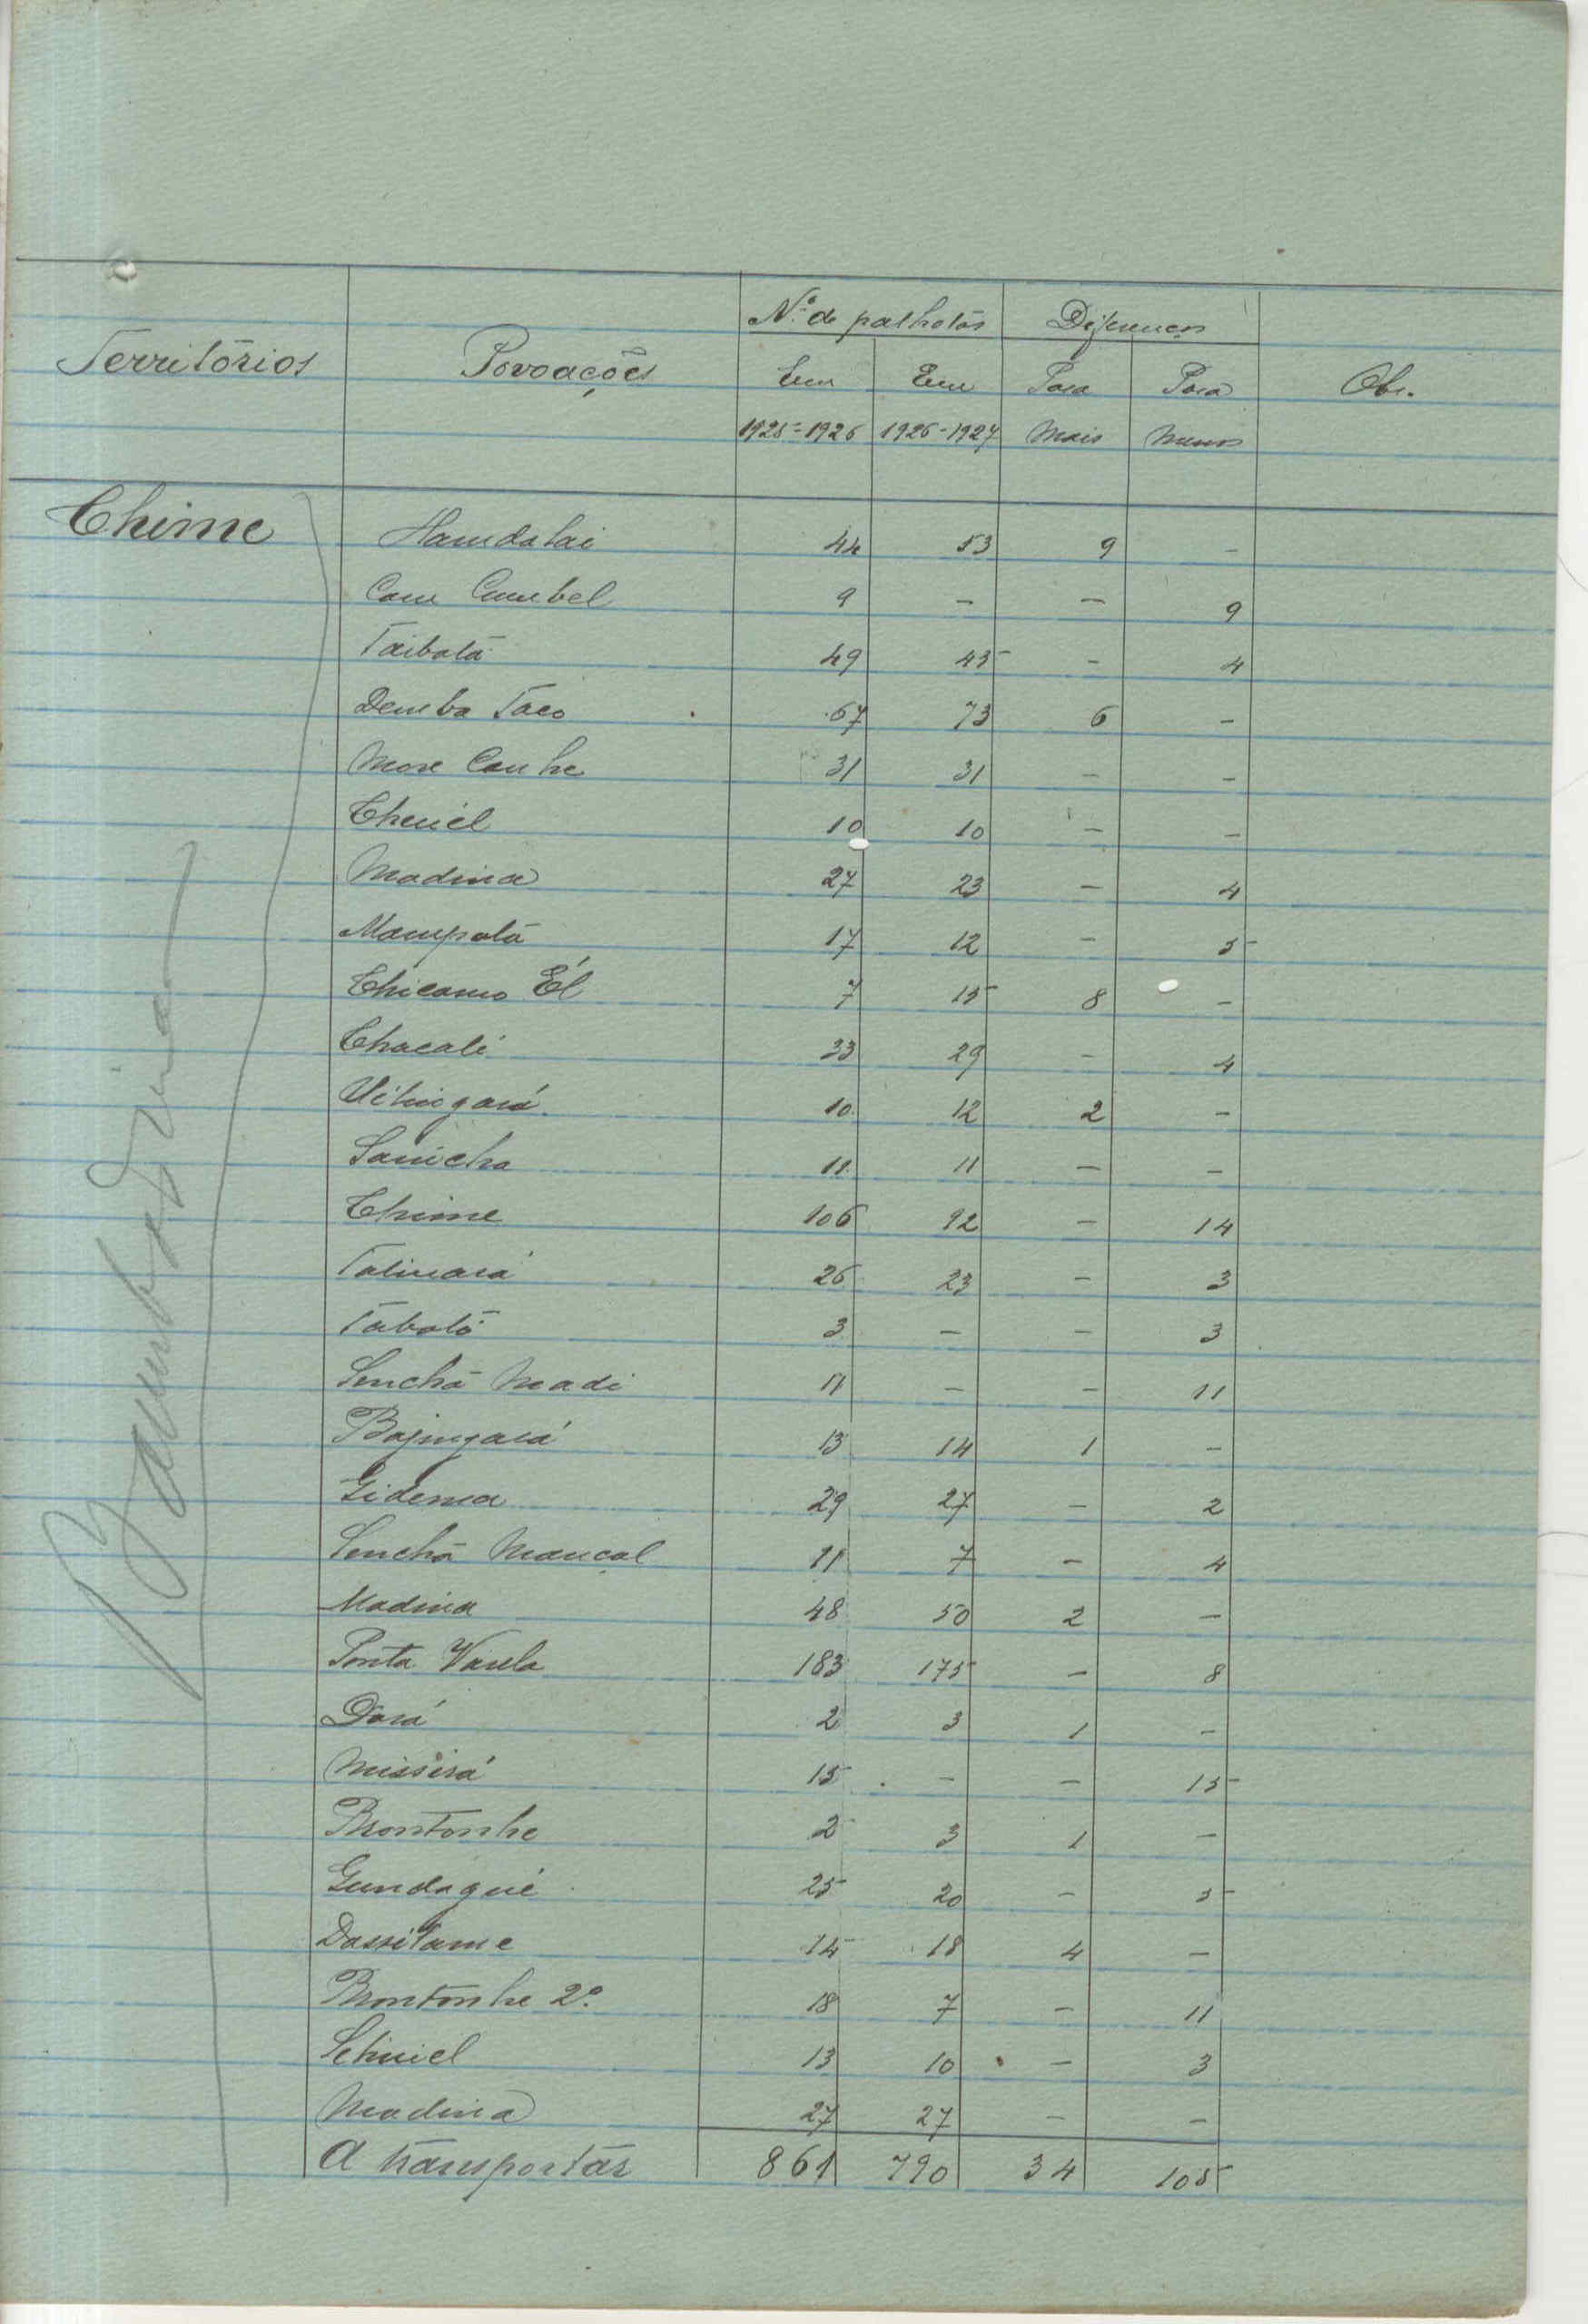 Territórios Povoações Nº de palhotas Diferenças Obs.
Em Em Para Para
1925-1926 1926-1927 Mais menos
Chime Hamdalai 44 53 9 -
Cam Cumbel 9 - - 9
Taibatá 49 45 - 4
Demba Taco 67 73 6 -
More Canhe 31 31 - -
Cheuél 10 10 - -
Madina 27 23 - 4
Mampatá 17 12 - 5
Chicamo Él 7 15 8 -
Chacali 33 29 - 4
10 12 2 -
Samcha 11 11 - -
Chime 106 92 - 14
Talinará 26 23 - 3
Tabatô 3 - - 3
Senchã Madi 11 - - 11
Bajingará 13 14 1 -
Gidema 29 27 - 2
Senchã Mançal 11 7 - 4
Madina 48 50 2 -
Ponta Varela 183 175 - 8
Dará 2 3 1 -
Missirá 15 - - 15
Brontonhe 2 3 1 -
Gundagué 25 20 - 5
Dassilame 14 18 4 -
Brontonhe 2º 18 7 - 11
13 10 - 3
Madina 27 27 - -
A transportar 861 790 34 105
Bambadinca